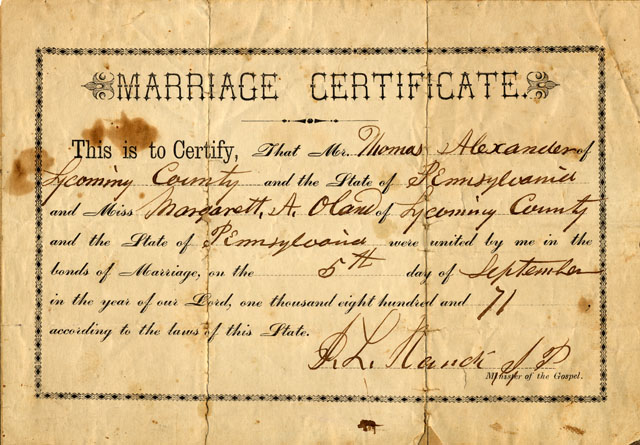 MARRIAGE CERTIFICATE.
This is to Certify, That Mr. Thomas Alexander of
Lycominy County and the State of Pennsylvania
and Miss Margarett, A. Oland of Lycominy County
and the State of Pennsylvania were united by me in the
bonds of Marriage, on the 5th day of September
in the year of our Lord, one thousand eight hundred and 71
according to the laws of this State.
L. J P
Minister of the Gospel.